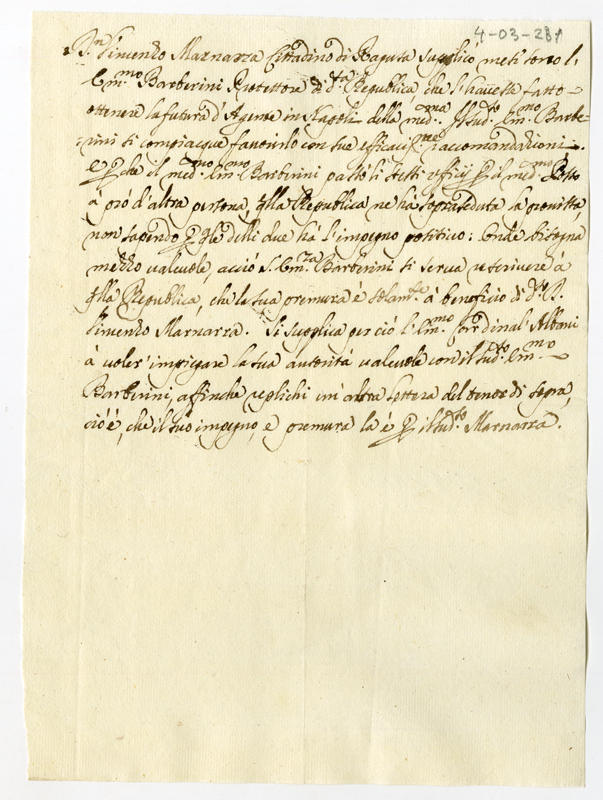 4-03-281
Dn. Simendo Marnarza Cittadino di Ragusa supplicò, mesi sono l'
Em.mo Barberini Protettore di d.ta Republica che l'havesse fatto
ottenere la futura d'Agente in Napoli della med.ma Il sud.to Em.mo Barbe-
rini si compiacque favorirlo con sue efficaciss.me raccomandazioni.
e p che il med.mo Em.mo Barberini passò li stessi ufficij p il med.mo Posto
à prò d'altra persona, qlla Republica ne hà sopraseduta la provista,
non sapendo p qle delli due hà l'impegno positivo: Onde bisogna
mezzo valevole, acciò S. Em.za Barberini si serva rescrivere à
qlla Republica, che la sua premura è solam.te à beneficio di d.o D.
Simendo Marnarza. Si supplica per ciò l'Em.mo Cardinal Albani
à voler impiegare la sua autorità valevole con il sud.to Em.mo
Barberini, affinche replichi un'altra lettera del tenor di sopra,
ció è, che il suo impegno, e premura la è p il sud.to Marnarza.